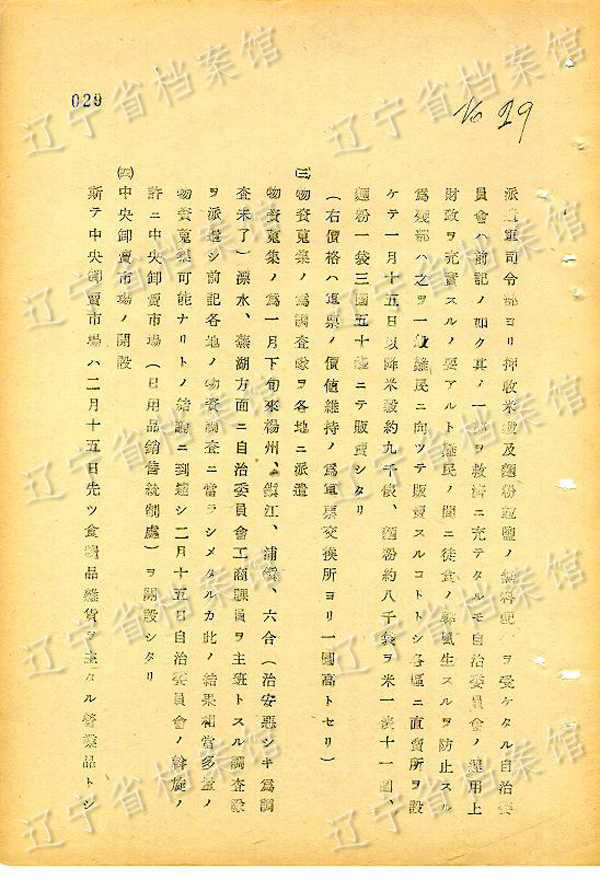 029
No 29
派遣軍司令部ヨリ押收米穀及麵粉竝鹽ノ無料配給ヲ受ケタル自治委
員會ハ前記ノ如ク其ノ一部ヲ救濟ニ充テタルモ自治委員會ノ運用上
財政ヲ充實スルノ要アルト難民ノ間ニ徒食ノ弊風生スルヲ防止スル
爲殘部ハ之ヲ一般難民ニ向ツテ販賣スルコトトシ各區ニ直賣所ヲ設
ケテ一月十五日以降米穀約九千俵、麵粉約八千袋ヲ米一俵十一圓、
麵粉一袋三圓五十錢ニテ販賣シタリ
(右價格ハ軍票ノ價値維持ノ爲軍票交換所ヨリ一圓高トセリ)
㈢物資蒐集ノ爲調査隊ヲ各地ニ派遣
物資蒐集ノ爲一月下旬來楊州、鎭江、浦鎭、六合(治安惡シキ爲調
査未了)溧水、蕪湖方面ニ自治委員會工商課員ヲ主班トスル調査隊
ヲ派遣シ前記各地ノ物資調査ニ當ラシメタルカ此ノ結果相當多量ノ
物資蒐集可能ナリトノ結論ニ到達シ二月十五日自治委員會ノ斡旋ノ
許ニ中央卸賣市場(日用品銷售統制處)ヲ開設シタリ
㈣中央卸賣市場ノ開設
斯テ中央卸賣市場ハ二月十五日先ツ食糧品雜貨ヲ主タル營業品トシ
辽宁省档案馆
辽宁省档案馆
辽宁省档案馆
辽宁省档案馆
辽宁省档案馆
辽宁省档案馆
辽宁省档案馆
辽宁省档案馆
辽宁省档案馆
辽宁省档案馆